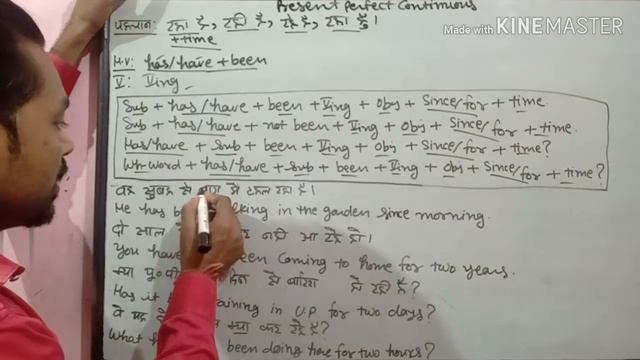 Present Perfect Continuous
Made with KINEMASTER
पहचान: रहा है, रही है, रहे हैं, रहा हूँ।
+time
H.V: has/have + been
V: Ving
Sub + has/have + been + Ving + Obj + Since/for + time.
Sub + has/have + not been + Ving + Obj + Since/for + time.
Has/have + Sub + been + Ving + Obj + Since/for + time?
Wh-word + has/have + Sub + been + Ving + Obj + Since/for + time?
वह सुबह से बाग में टहल रहा है।
He has lking in the garden since morning.
दो साल नही आ रहे हो।
You have een coming to home for two years.
क्या यू० पी से बारिश हो रही है?
Has it aining in U.P for two days?
वे क्या कर रहे हैं?
What been doing here for two hours?